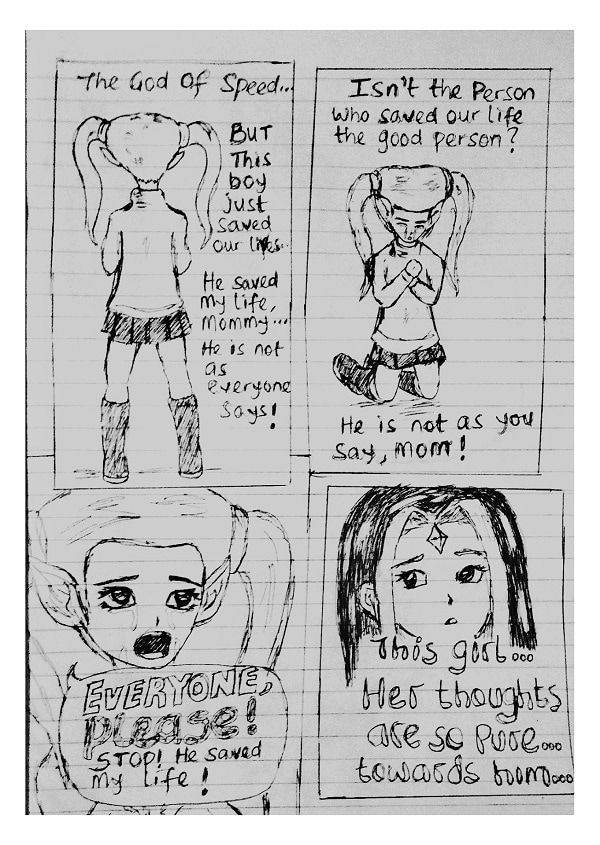 The God Of Speed...
BUT
This
boy
just
saved
our lives..
He saved
my life,
Mommy...
He is not
as
everyone
says!
Isn't the Person
who saved our life
the good person?
He is not as you
say, mom!
EVERYONE,
please!
STOP! He saved
my life!
This girl...
Her thoughts
are so pure...
towards him...